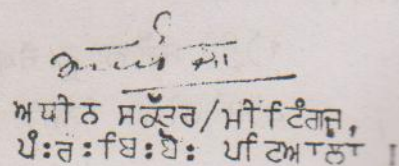 ਅਧੀਨ ਸਕੱਤਰ/ਮੀਟਿੰਗਜ਼,
ਪੰ:ਰ:ਬਿ:ਬੋ: ਪਟਿਆਲਾ।